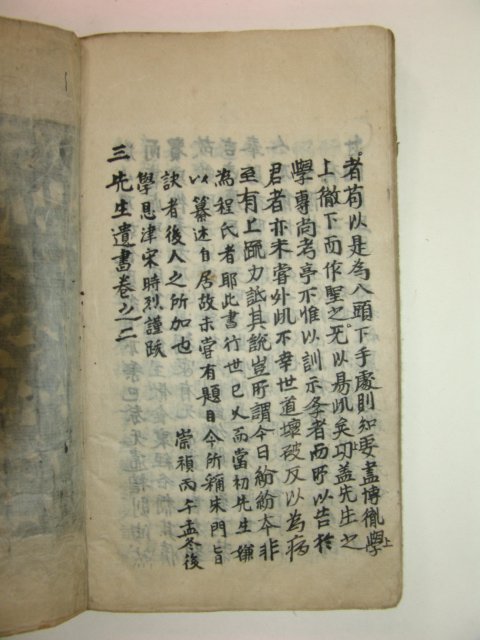 者苟以是為入頭下手處則知要盡博徹學上
上徹下而作聖之无以易此矣功蓋先生之
學專尚考亭不惟以訓示學者而所以告於
君者亦未嘗外此不幸世道壞破反以為病
至有上疏力詆其說豈所謂今日紛紛本非
為程氏者耶此書行世已久而當初先生嫌
以纂述自居故未嘗有題目今所稱朱門旨
訣者後人之所加也 崇禎丙午孟冬後
學恩津宋時烈謹跋
三先生遺書卷之二